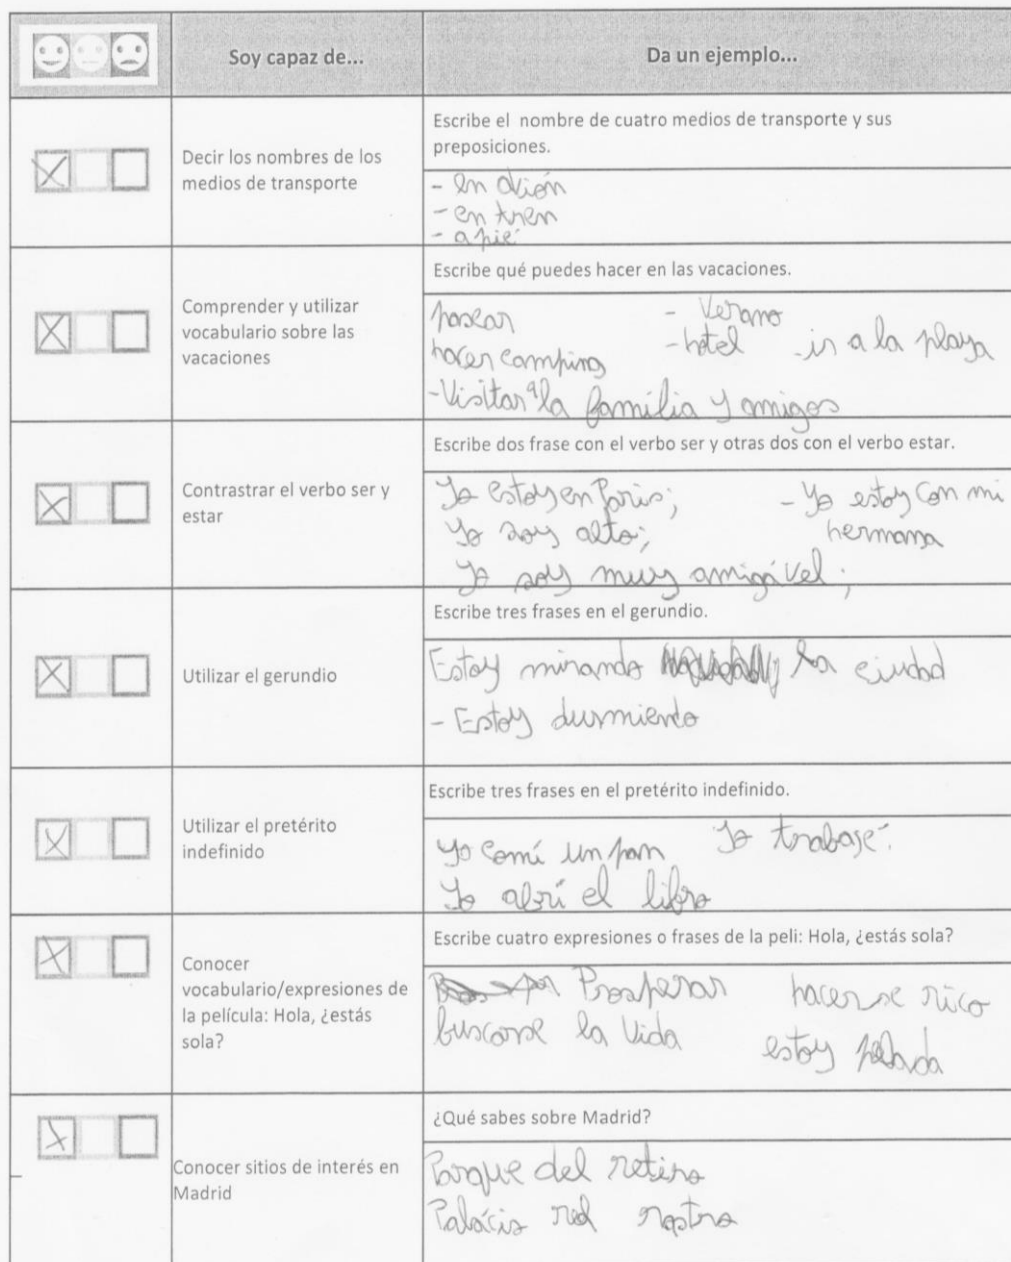 Soy capaz de...
Da un ejemplo...
Decir los nombres de los
medios de transporte
Escribe el nombre de cuatro medios de transporte y sus
preposiciones.
- en avión
- en tren
- a pie
Comprender y utilizar
vocabulario sobre las
vacaciones
Escribe qué puedes hacer en las vacaciones.
pasear - Verano
hacer camping - hotel - ir a la playa
- Visitar a la família y amigos
Contrastrar el verbo ser y
estar
Escribe dos frase con el verbo ser y otras dos con el verbo estar.
Yo estoy en Paris; - Yo estoy con mi
Yo soy alto; hermana
Yo soy muy amigável;
Utilizar el gerundio
Escribe tres frases en el gerundio.
Estoy mirando la ciudad
- Estoy durmiendo
Utilizar el pretérito
indefinido
Escribe tres frases en el pretérito indefinido.
Yo comí un pan Yo trabajé.
Yo abrí el libro
Conocer
vocabulario/expresiones de
la película: Hola, ¿estás
sola?
Escribe cuatro expresiones o frases de la peli: Hola, ¿estás sola?
Prosperar hacerse rico
buscarse la vida estoy pelada
Conocer sitios de interés en
Madrid
¿Qué sabes sobre Madrid?
Parque del retiro
Palácio real rastro